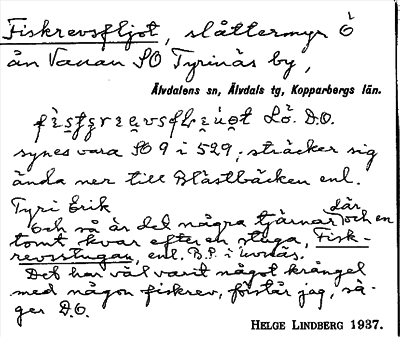 Fiskrevsfljot, slåttermyr Ö
ån Vanan SO Tyrinäs by,
Älvdalens sn, Älvdals tg, Kopparbergs län.
Lö. D.O.
synes vara SO 9 i 529; sträcker sig
ända ner till Blästbäcken enl.
Tyri Erik
Och så är det några tjärnar där och en
tomt kvar efter en stuga, Fisk-
revsstugan, enl. B.P. i
Det har väl varit något krångel
med någon fiskrev, förstår jag, sä-
ger D.O.
HELGE LINDBERG 1937.